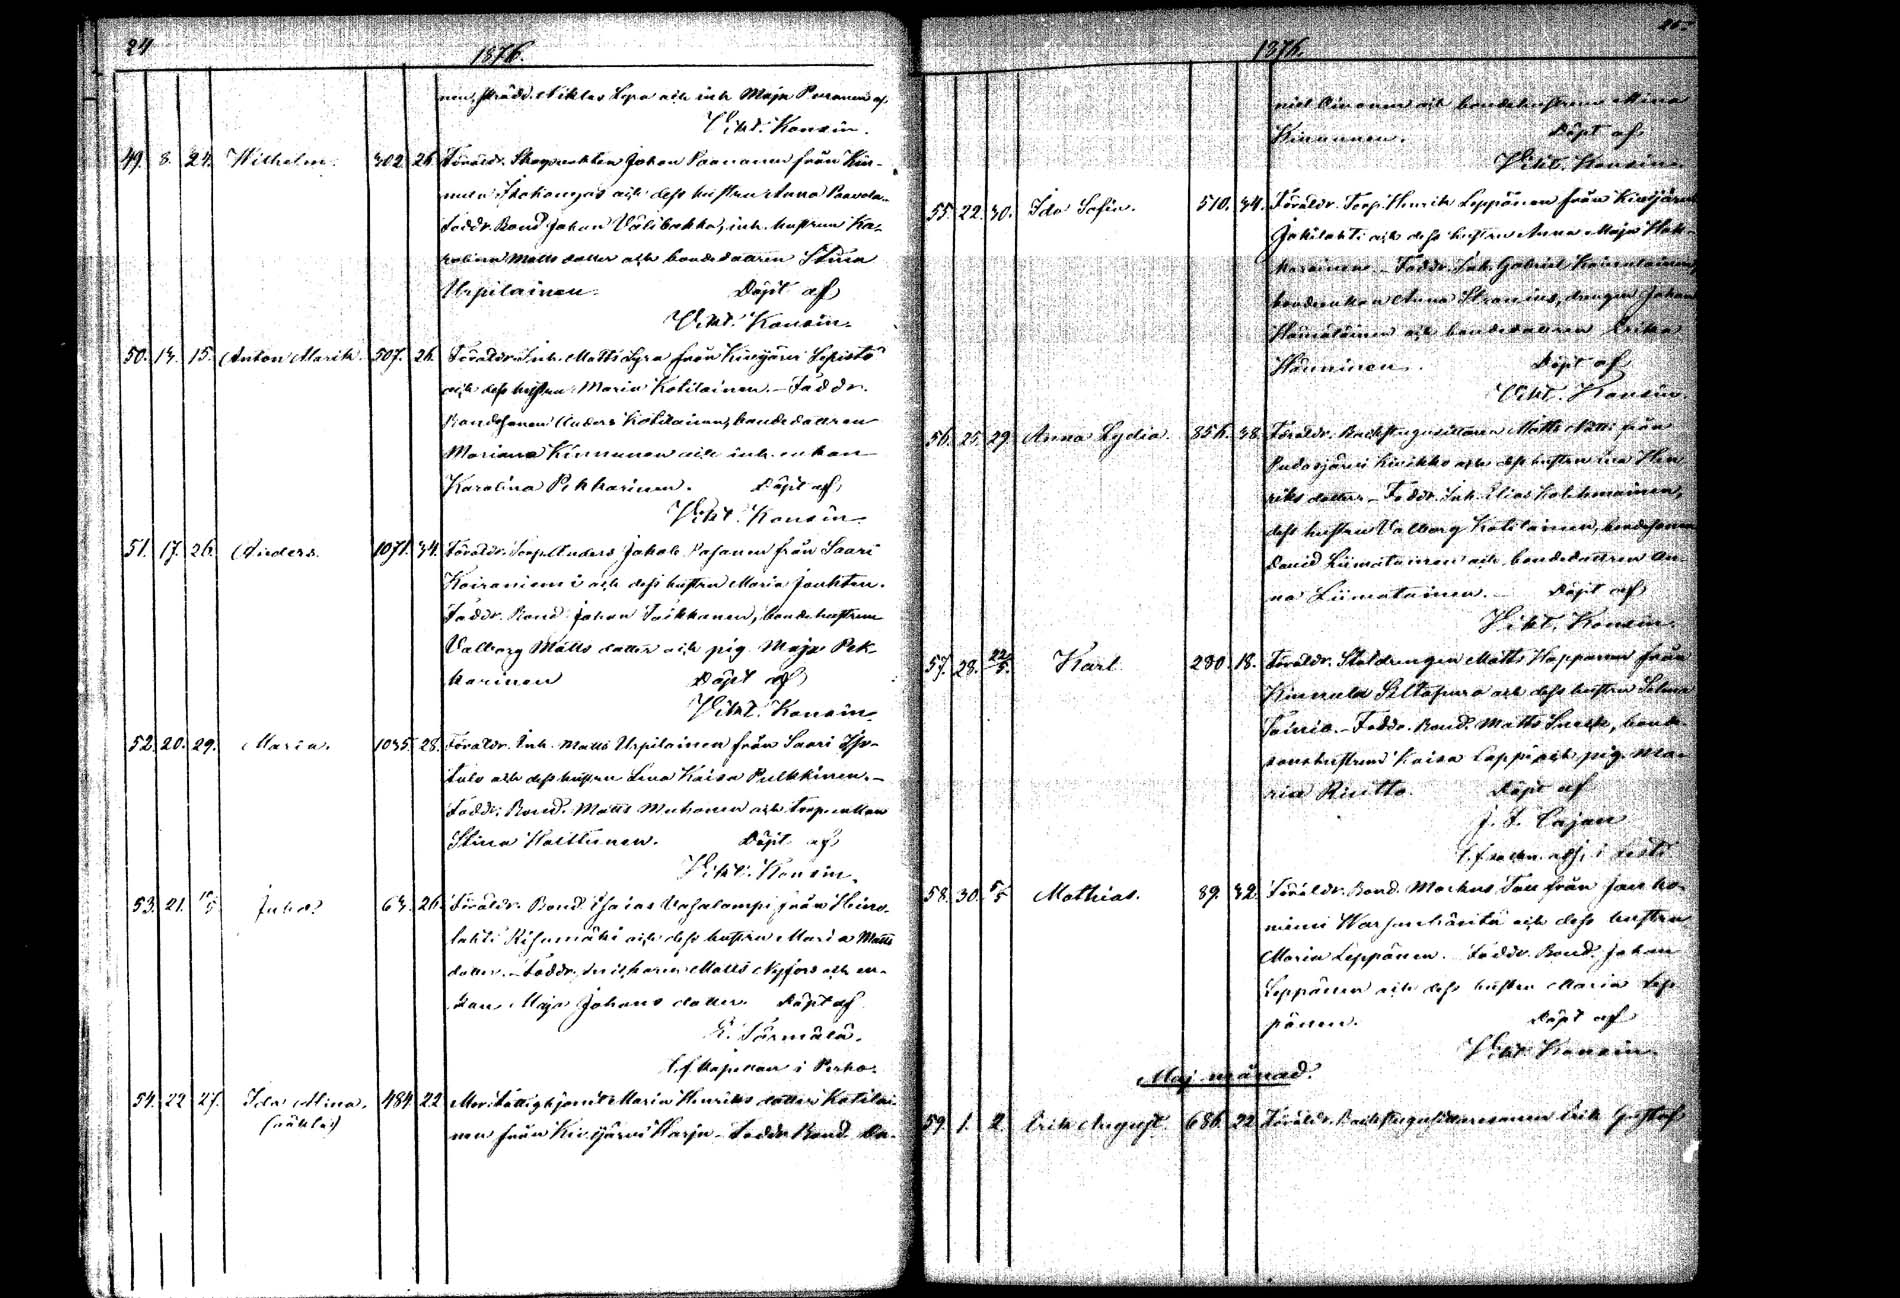 24
1876.
Vikt. Konsin.
49. 8. 24. Wilhelm. 302. 26. Föräldr. Skogvakten Johan Paananen från Kin-
och dess hustru Anna Paavola.
Faddr. Bond. Johan Välibakka, inh. hustrun Ka-
rolina Matts dotter och bondedottren Stina
Urpilainen. Döpt af
Vikt. Konsin.
50. 13. 15. Anton Marik. 507. 26. Föräldr. Inh. Matts Lyra från Kivijärvi Lepistö
och dess hustru Maria Kotilainen. – Faddr.
Bondesonen Anders Kotilainen, bondedottren
Mariana Kinnunen och inh. enkan
Karolina Pekkarinen. Döpt af
Vikt. Konsin.
51. 17. 26. Anders. 1071. 34. Föräldr. Torp. Anders Jakob Pasanen från Saari
Koiraniemi och dess hustru Maria
Faddr. Bond. Johan Paikkanen, bondehustrun
Valborg Matts dotter och pig. Maja Pek-
karinen Döpt af
Vikt. Konsin.
52. 20. 29. Maria. 1035. 28. Föräldr. Inh. Matts Urpilainen från Saari
och dess hustru Lena Kaisa Pulkkinen. –
Faddr. Bond. Matts Muhonen och torp. enkan
Stina Halttunen. Döpt af
Vikt. Konsin.
53. 21. 10/5 Juho. 63. 26. Föräldr. Bond. Esaias Vasalampi från Heino-
lahti Risumäki och dess hustru Maria Matts
dotter. – Faddr. Matts Nyfors och en-
kan Maja Johans dotter. Döpt af
E. Törmälä.
t.f. kapellan i Perho.
54. 22 27. Ida Mina. 484 22 Mor: Maria Henriks dotter Kotilai-
(oäkta) nen från Kivijärvi Harju – Faddr. Bond. Da-
1876.
niel Ainonen och bondehustrun Mina
Kinnunen. Döpt af
Vikt. Konsin.
55. 22. 30. Ida Sofia. 510. 34. Föräldr. Torp. Henrik Leppänen från Kivijärvi
Jokilahti och dess hustru Anna Maja Hak-
karainen. – Faddr. Inh. Gabriel
bondeenkan Anna Stranius, drengen Johan
Hämäläinen och bondedottren Erika
Hänninen. Döpt af
Vikt. Konsin.
56. 25. 29. Anna Lydia. 856. 38. Föräldr. Backstugusittaren Matts från
Pudasjärvi Kivikko och dess hustru Hen-
riks dotter – Faddr. Inh. Elias Kolehmainen,
dess hustru Valborg Kotilainen, bondesonen
David Liimatainen och bondedottren An-
na Liimatainen. – Döpt af
Vikt. Konsin.
57. 28. 22/5. Karl 280. 18. Föräldr. Stoldrengen Matts Happonen från
Kinnula och dess hustru Selma
Faddr. Bond. Matts bonde-
sonshustrun Kaisa Lappi och pig. Ma-
ria Döpt af
J. F. Cajan
58. 30. 5/5 Mathias. 89. 32. Föräldr. Bond. Markus från Jauho-
niemi och dess hustru
Maria Leppänen. Faddr. Bond. Johan
Leppänen och dess hustru Maria Lep-
pänen. Döpt af
Vikt. Konsin.
Maj månad.
59. 1. 2. Erik August. 686. 22 Föräldr. Backstugusittaresonen Erik Gustaf